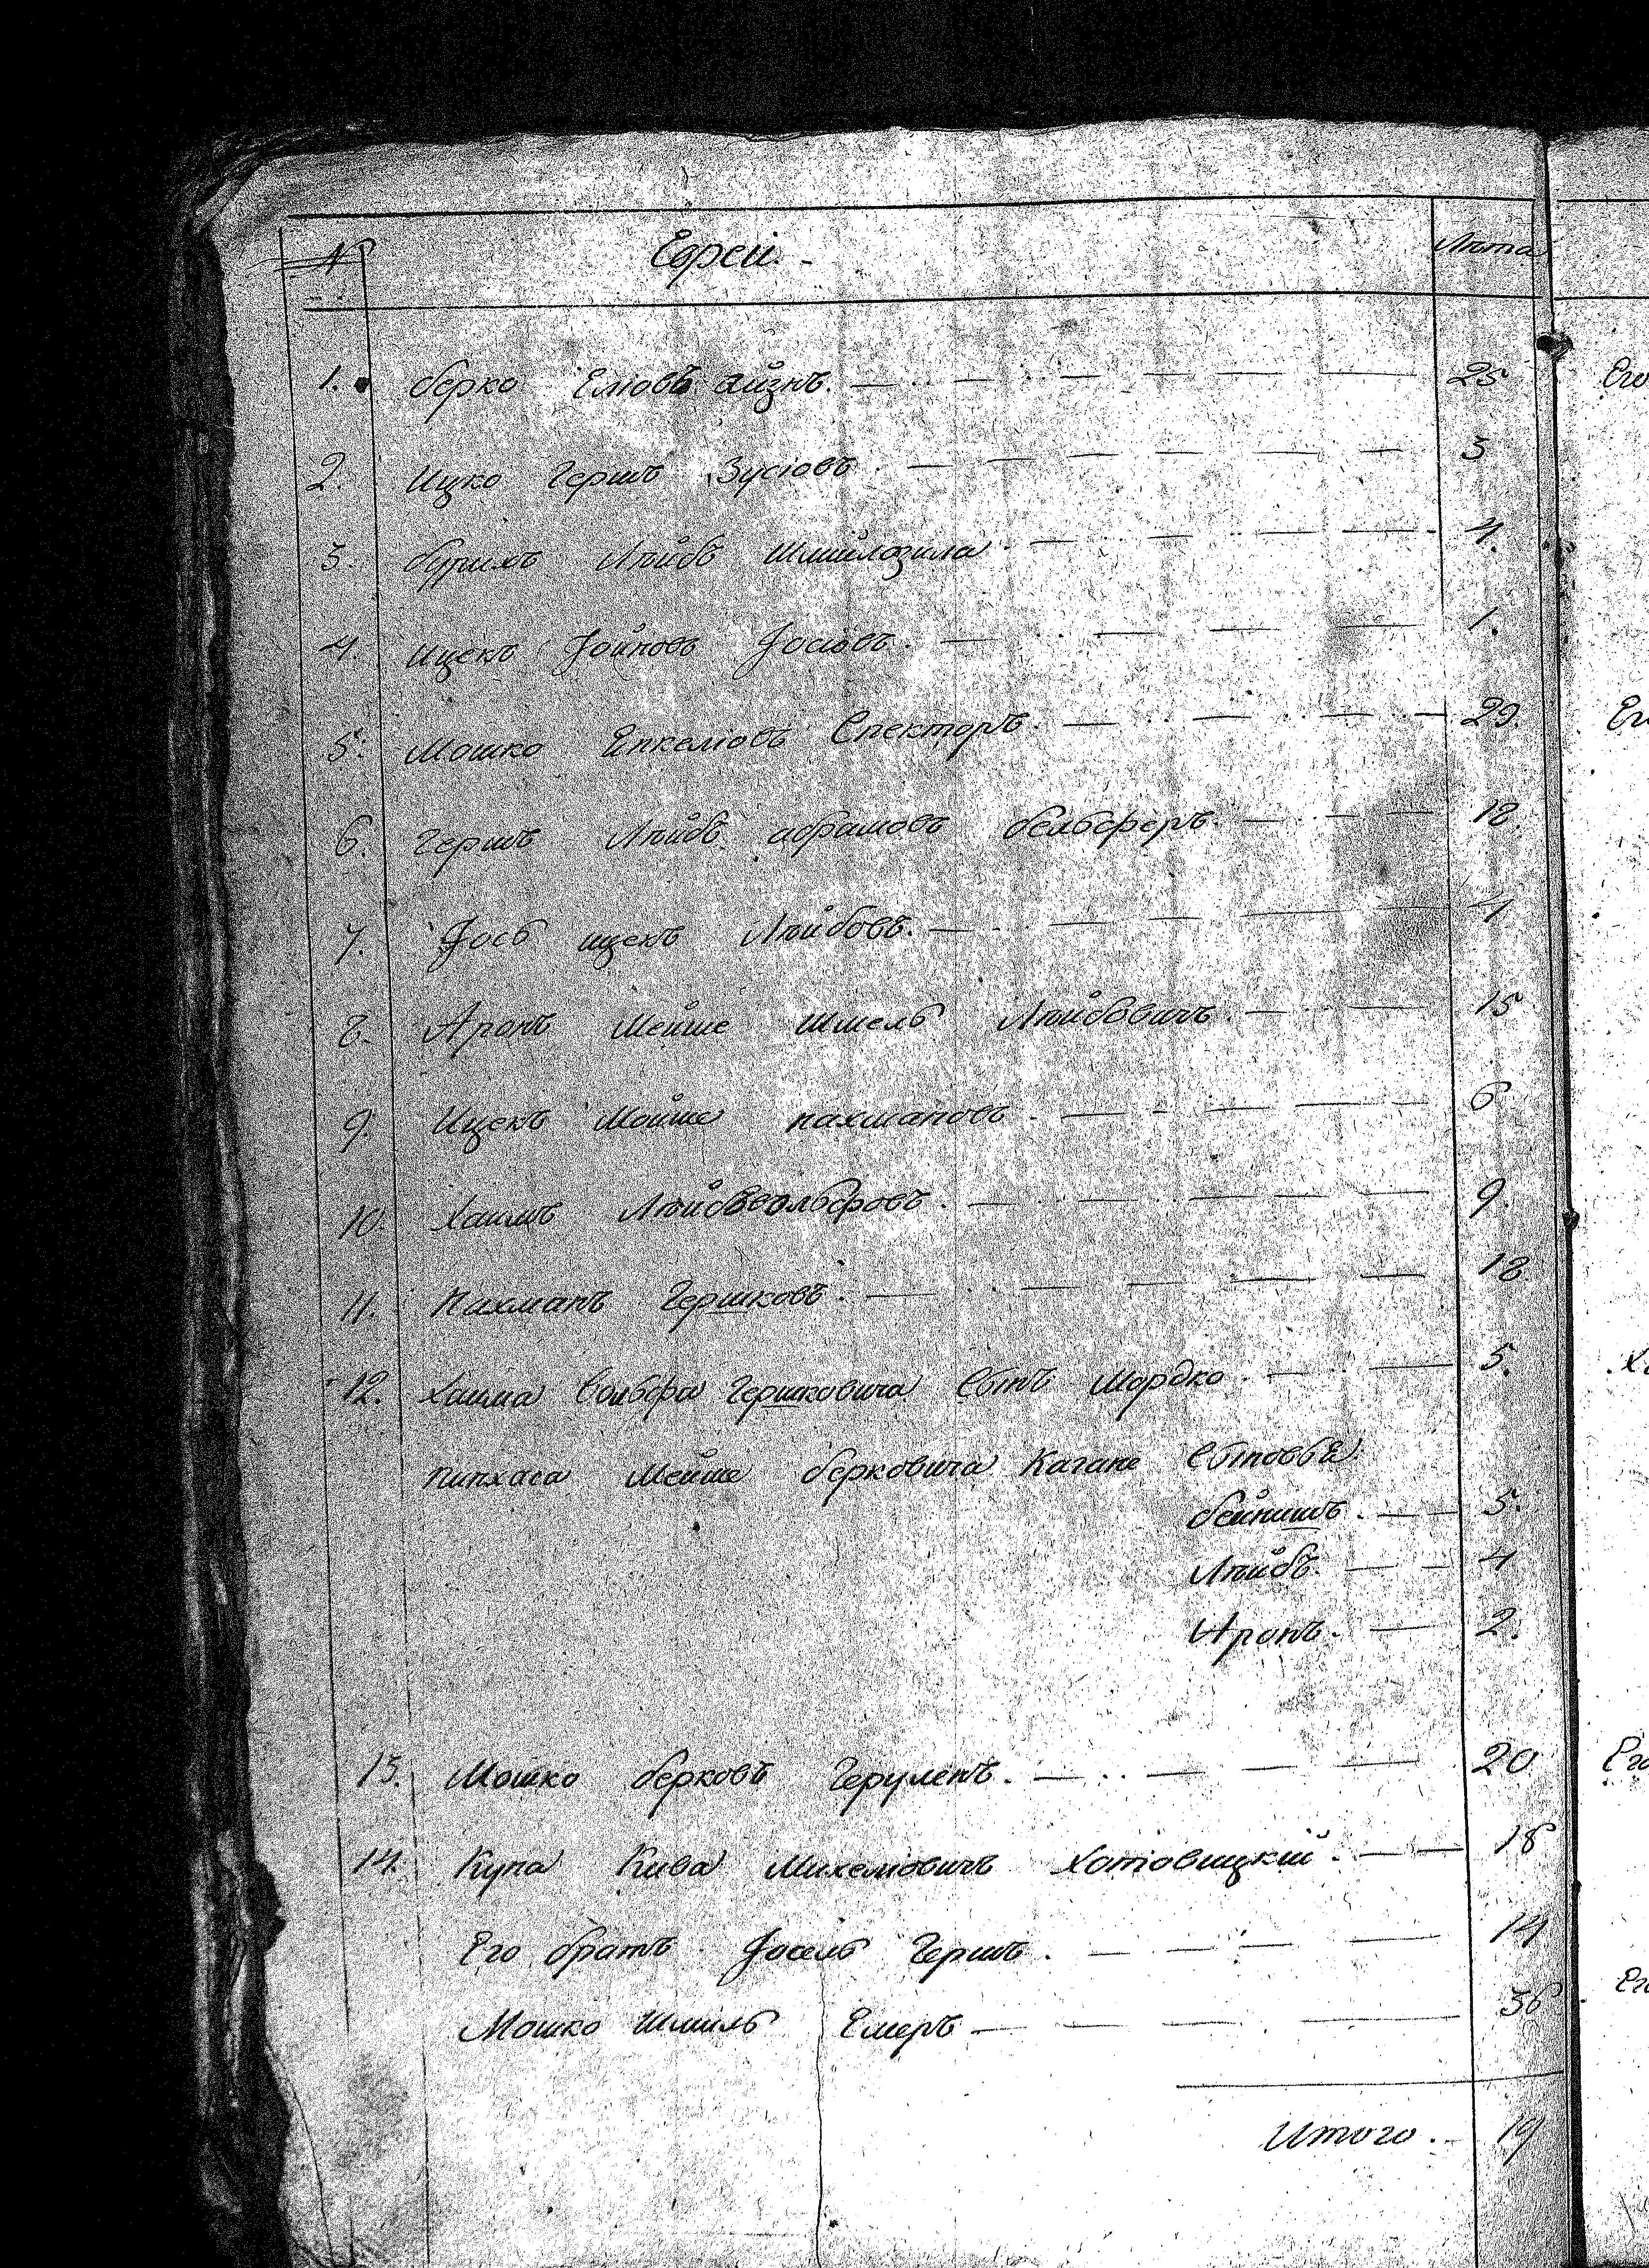 № Евреи. Лѣта
1. Берко Еліовъ Айзнъ. 25
2. Ицко Гершъ Зусіовъ 3
3. Лѣйбъ 4.
4. Ицекъ Іойновъ Іосіовъ. 1.
5. Мошко Енкеліовъ Спекторъ. 29.
6. Гершъ Лѣйбъ Абрамовъ Бельферъ. 18.
7. Іось Ицекъ Лѣйбовъ. 4
8. Аронъ Мейше Шмель Лѣйбовичъ. 15
9. Ицекъ Мойше Нахмановъ. 6
10. Хаимъ Лѣйб Вольфовъ. 9.
11. Нахманъ Гершковъ. 18.
12. Хаима Вольфа Гершковича Сынъ Мордко. 5.
Пинхаса Мейше Берковича Кагане Сыновья
Бейнишъ. 5.
Лѣйбъ. 4
Аронъ. 2.
13. Мошко Берковъ Геруленъ. 20
14. Купа Кива Михеліовичъ Хатовицкій. 18
Его братъ Іосель Гершъ. 14
Мошко Шмиль Емеръ 36
Итого. 19